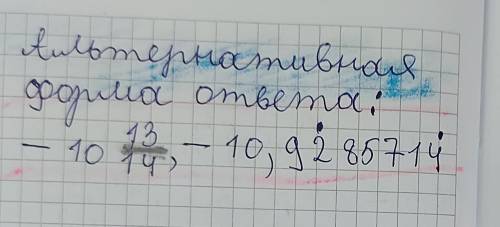 Альтернативная
форма ответа:
- 10 13/14, - 10,92̇85714̇